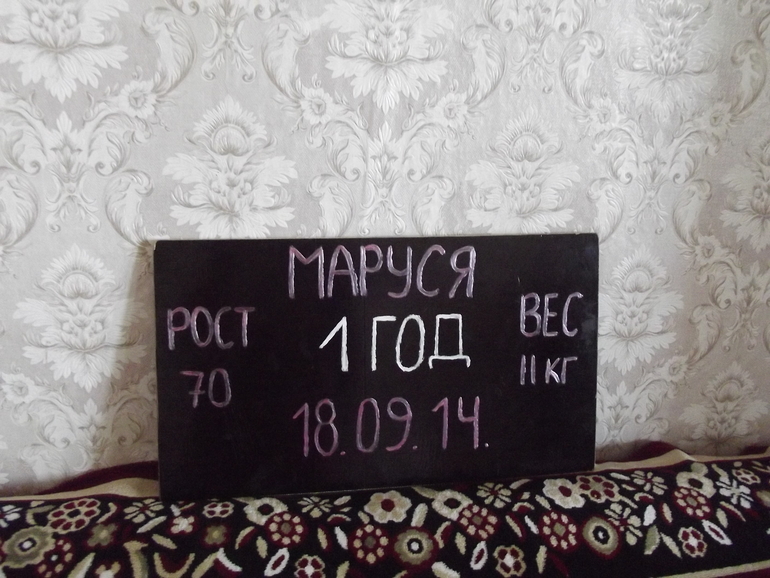 МАРУСЯ
РОСТ 1 ГОД ВЕС
70 11 КГ
18.09.14.